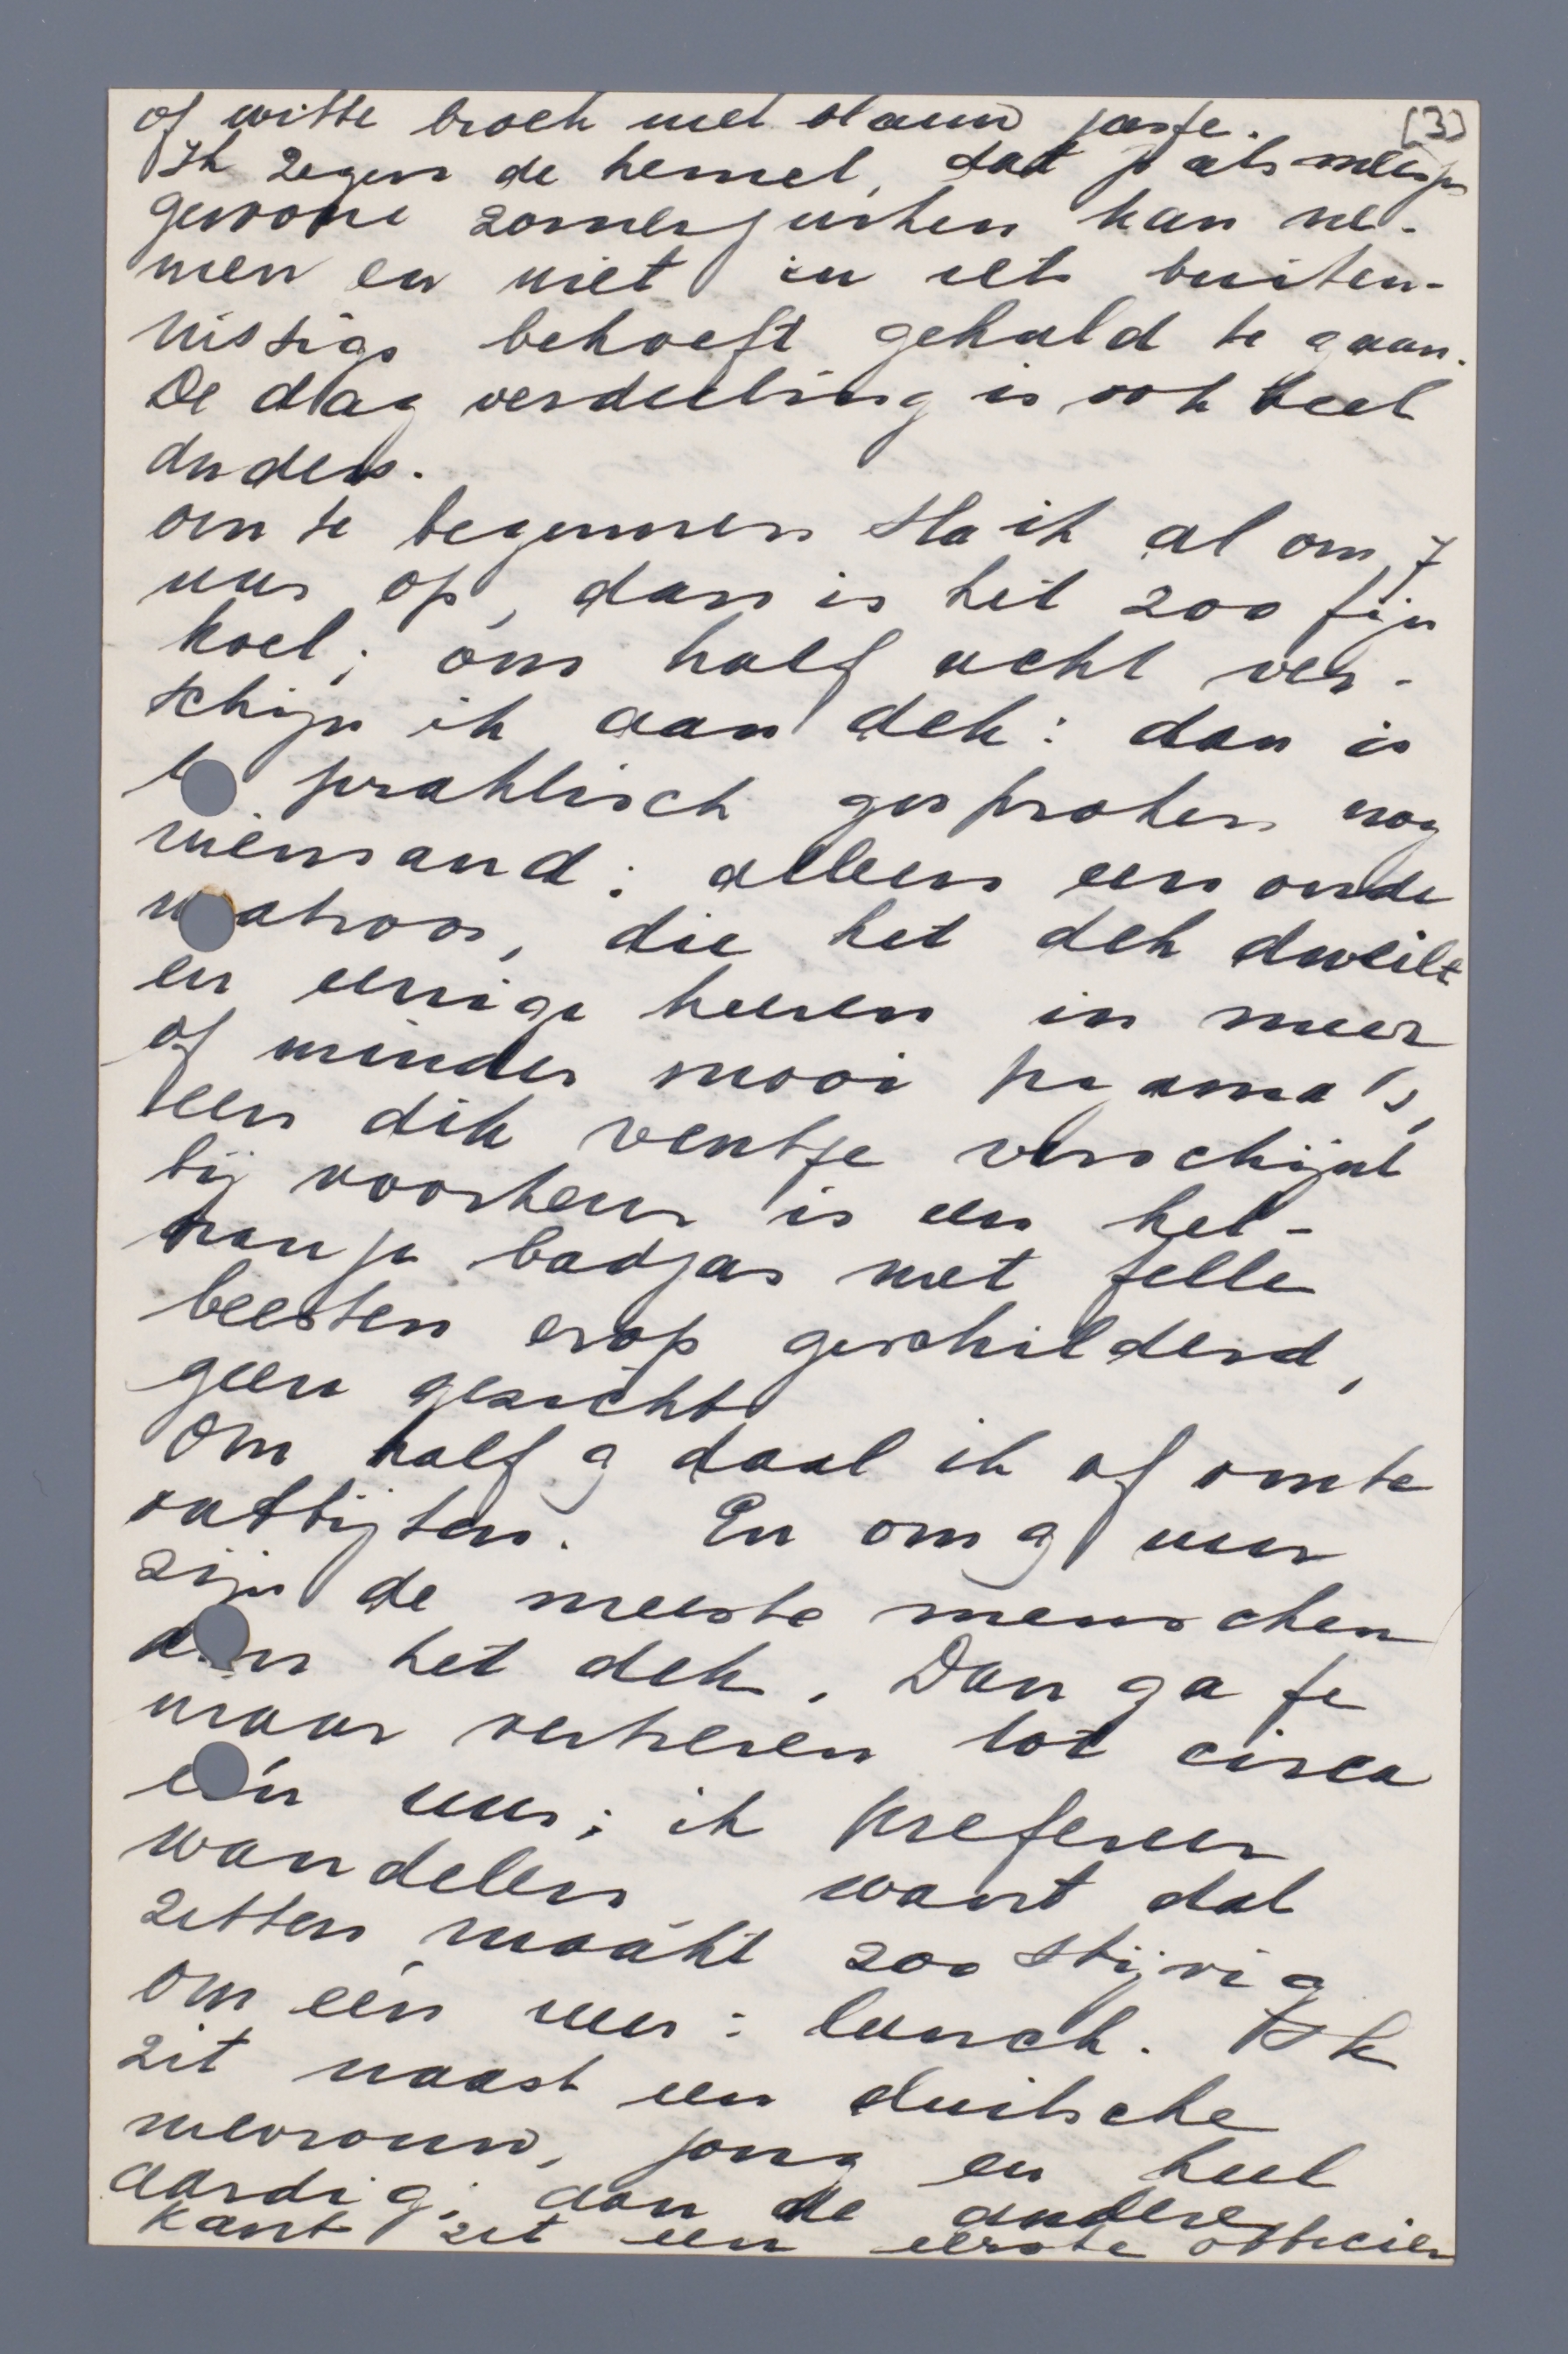 of witte broek met blauw jasje. (3)
Ik zegen de hemel, dat je als meisje
gewone zomerjurken kan ne-
men en niet in iets buiten-
nissigs behoeft gehuld te gaan.
De dagverdeeling is ook heel
anders.
om te beginnen sta ik al om 7
uur op, dan is het zoo fijn
koel; om half acht ver-
schijn ik aan dek: dan is
er praktisch gesproken nog
niemand: alleen een oude
matroos, die het dek dweilt
en eenige heeren in meer
of minder mooi pyama's,
een dik ventje verschijnt
bij voorkeur in een hel-
oranje badjas met felle
beesten erop geschilderd,
geen gezicht
Om half 9 daal ik af om te
ontbijten. En om 9 uur
zijn de meeste menschen
aan het dek. Dan ga je
maar verteren tot circa
één uur; ik prefereer
wandelen want dat
zitten maakt zoo stijvig
om één uur: lunch. Ik
zit naast een duitsche
mevrouw, jong en heel
aardig; aan de andere
kant zit een eerste officier